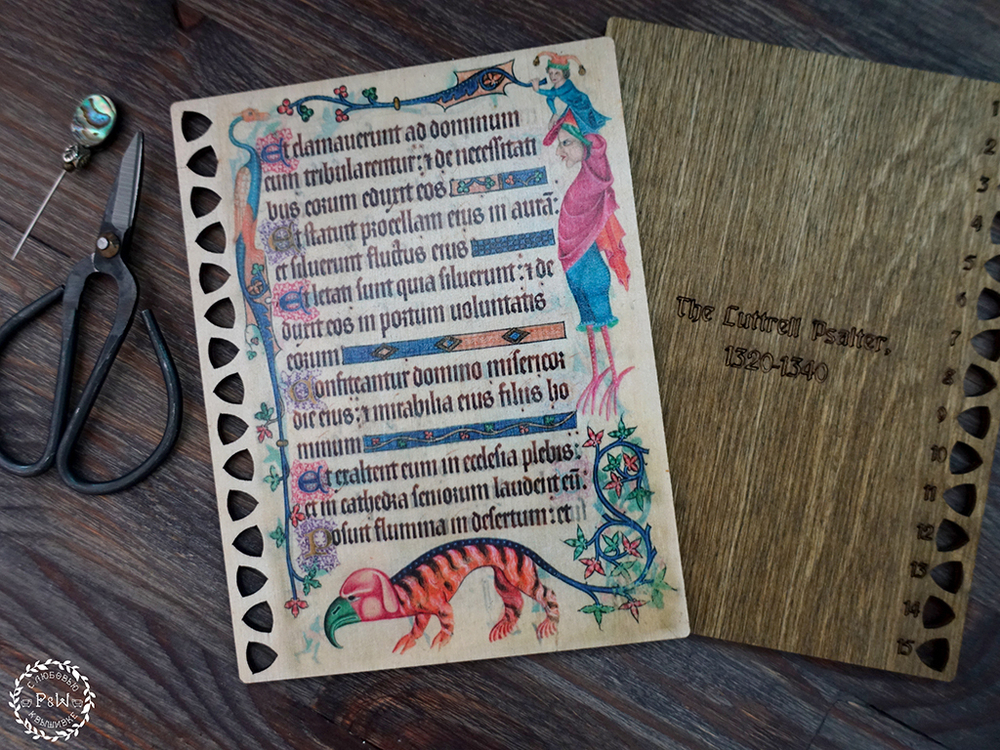 Et clamauerunt ad dominum
cum tribularentur: ⁊ de necessitati
bus eorum eduxit eos
Et statuit procellam eius in aurā:
et siluerunt fluctus eius
Et letati sunt quia siluerunt: ⁊ de
duxit eos in portum uoluntatis
eorum
Confiteantur domino misericor
die eius: ⁊ mirabilia eius filiis ho
minum
Et exaltent eum in ecclesia plebis:
et in cathedra seniorum laudent eū:
Posuit flumina in desertum: et
The Luttrell Psalter,
1320-1340
1
2
3
4
5
6
7
8
9
10
11
12
13
14
15
С ЛЮБОВЬЮ
P&W
К ВЫШИВКЕ